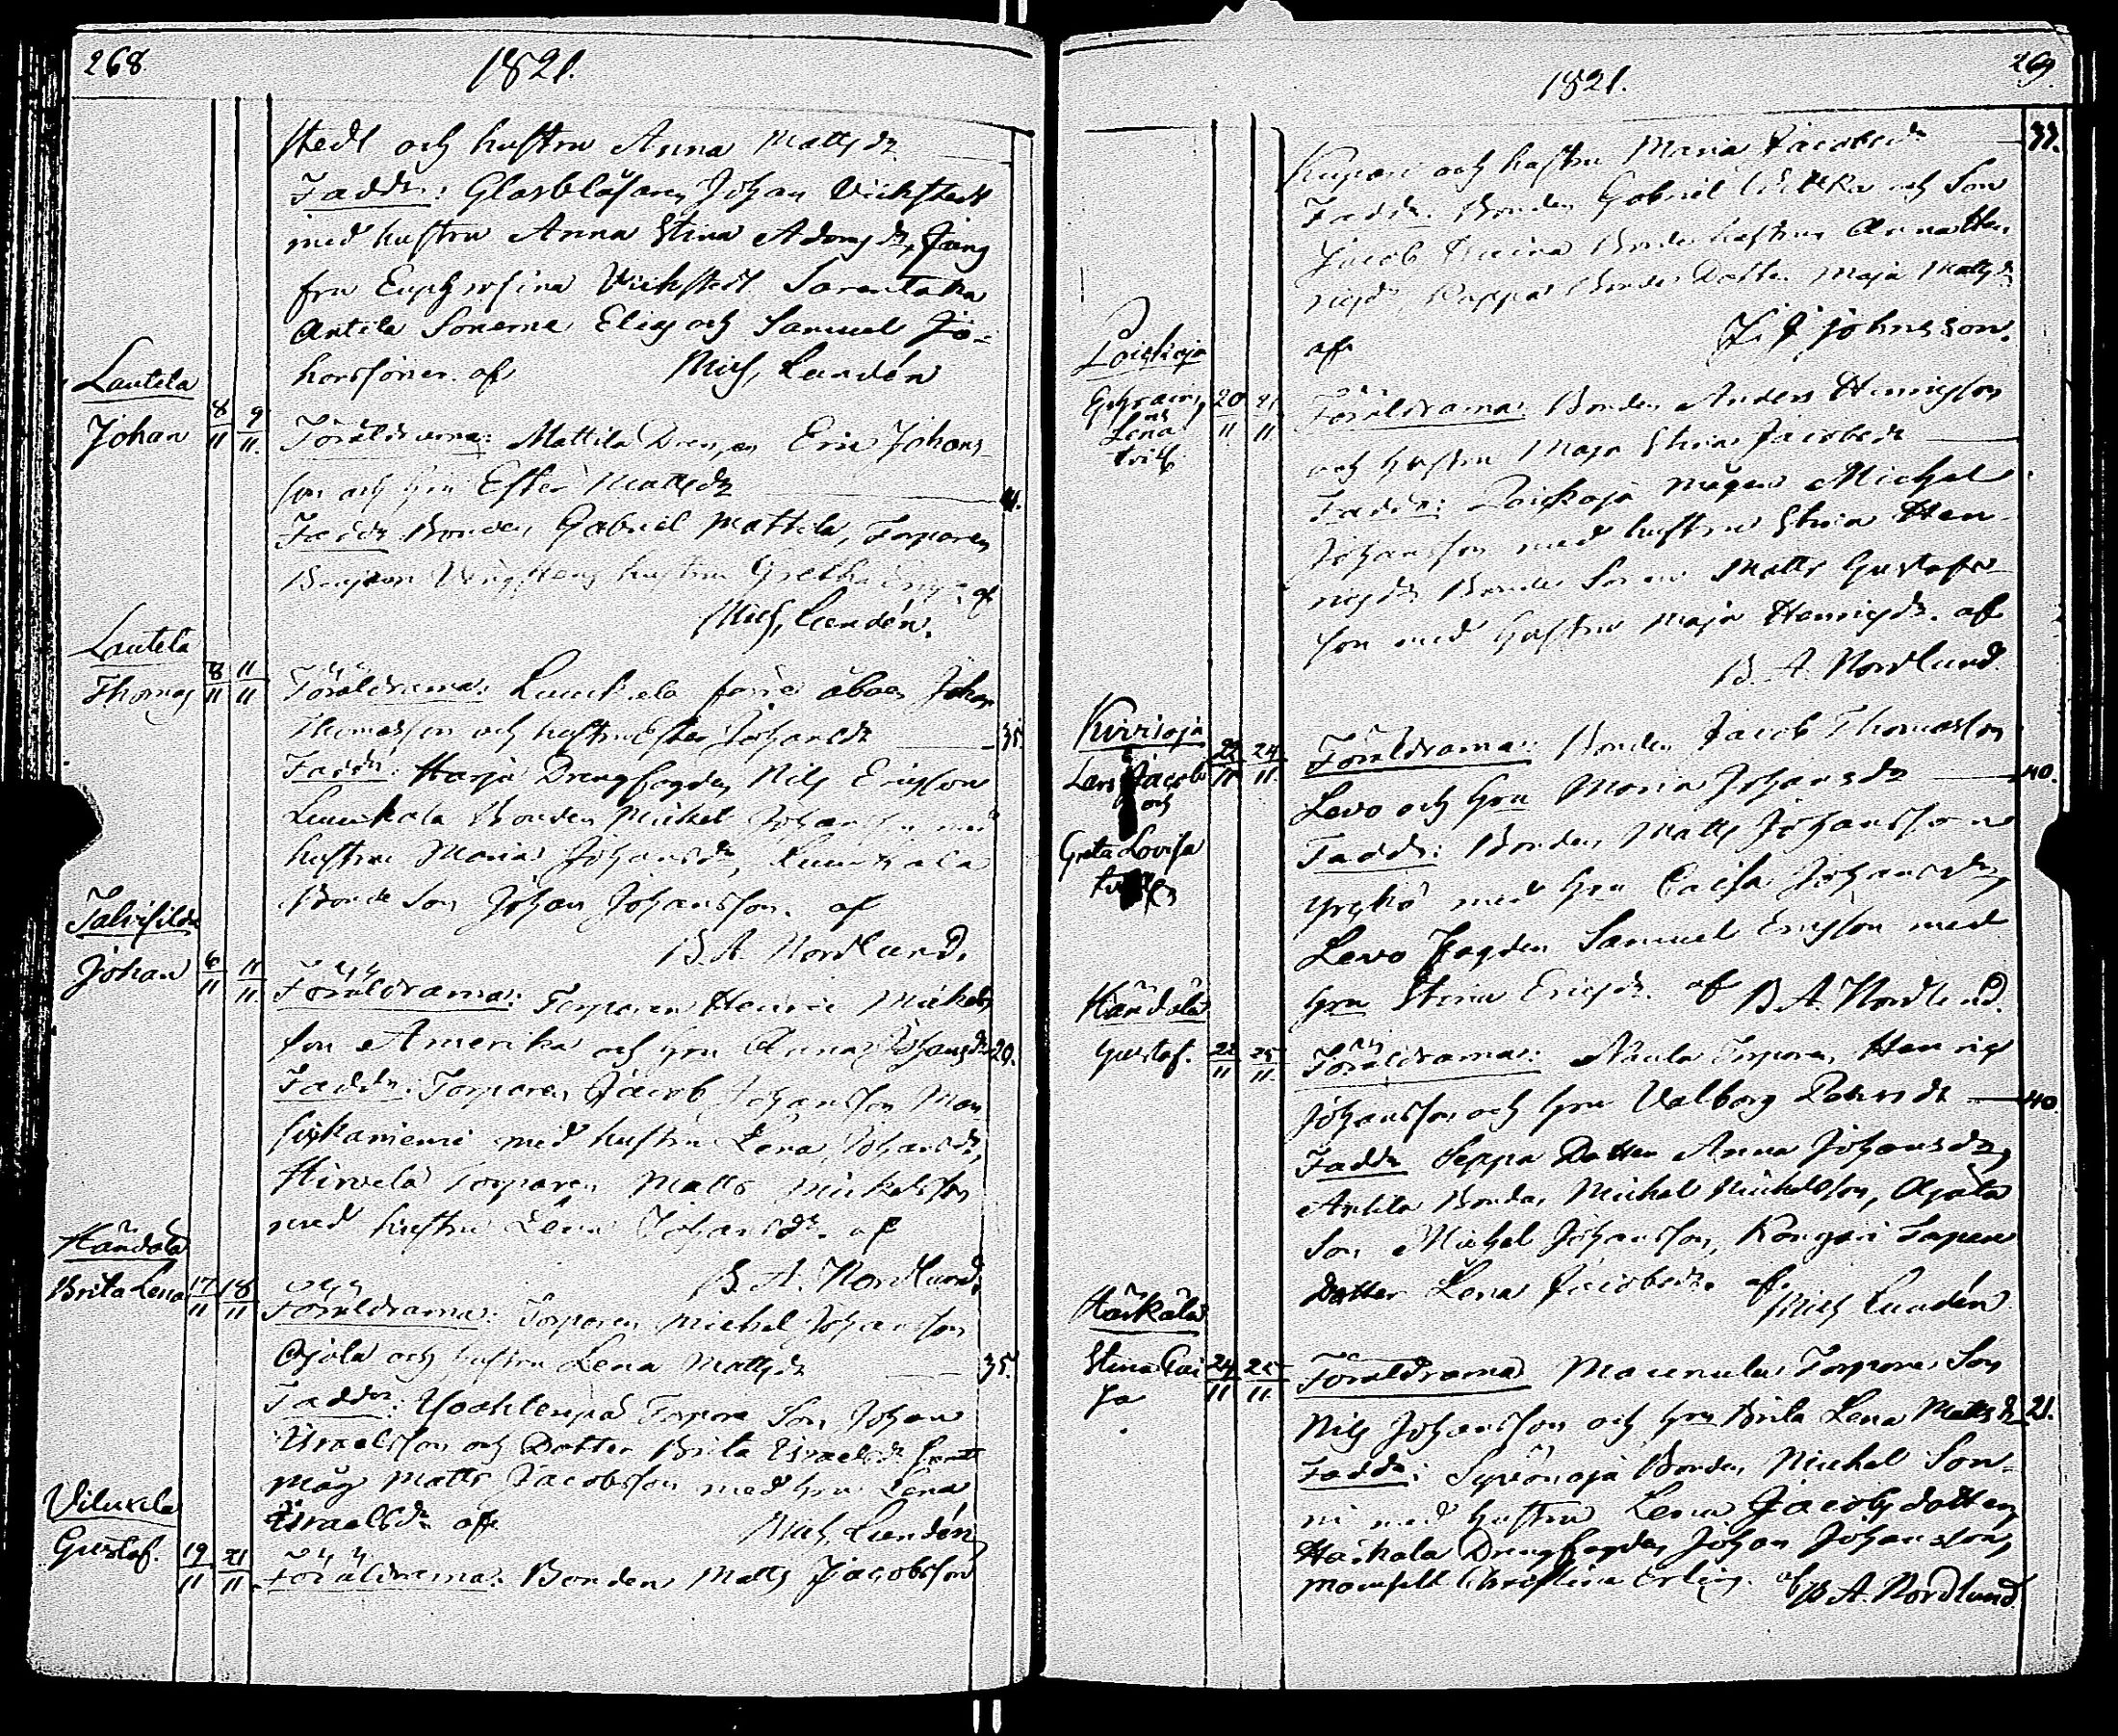 268.
1821.
stedt och hustru Anna Mattsdr
Faddr: Glasblåsaren Johan Vickstedt
med hustru Anna Stina Adamsdr, Jung
fru Euphrosina Vickstedt
Antila Sönerne Elias och Samuel Jo-
hanssöner. af Mich, Lundén
Lautela
Johan 8/11 9/11. Föräldrarna: Mattila Drengen Eric Johans-
son och hru Ester Mattsdr 41.
Faddr Bonden Gabriel Mattila, Torparen
hustru Gretha af
Mich, Lundén.
Lautela
Thomas 8/11 11/11 Föräldrarna: Luukala förre åboen Johan
Thomasson och hustru Ester Johansdr 35.
Faddr: Harja Drengfogden Nils Ericsson
Luukala Bonden Mickel Johansson med
hustru Maria Johansdr, Luukala
Bonde Son Johan Johansson. af
B. A. Nordlund.
Talvisilda
Johan 6/11 11/11. Föräldrarna: Torparen Henric Mickels
son Amerika och hru Anna Johansdr 20.
Faddr: Torparen Jacob Johansson Man
siskaniemi med hustru Lena Johansdr,
Hirvelä Torparen Matts Mickelsson
med hustru Lena Johansdr. af
B. A. Nordlund.
Håndola
Brita Lena 17/11 18/11 Föräldrarna: Torparen Michel Johansson
Ojala och hustru Lena Mattsdr 35.
Faddr: Torpare Son Johan
Israelsson och Dotter Brita Israelsdr samt
måg Matts Jacobsson med hru Lena
Israelsdr af Mich, Lundén
Viluxela
Gustaf. 19/11 21/11. Föräldrarna: Bonden Matts Jacobsson
269.
1821.
Kupari och hustru Maria Jacobsdr 33.
Faddr. Bonden Gabriel och Son
Jacob Bonde hustrun Anna Hen
ricsdr Bonde Dotter Maja Mattsdr
af J. johnsson.
Loiskoja
Ephraim, och Lena tvill. 20/11 21/11 Föräldrarna: Bonden Anders Henricsson
och hustru Maja Stina Jacobsdr
Faddr: Loiskoja mågen Michel
Johansson med hustru Stina Hen
ricsdr Bonde Sonen Matts Gustafs-
son med hustru Maja Henricsdr. af
B. A. Nordlund
Kivisoja
Lars Jacob och Greta Lovisa 22/11 24/11. Föräldrarna: Bonden Jacob Thomasson
Levo och hru Maria Johansdr 40.
Faddr: Bonden Matts Johansson
Yrskö med hru Caisa Johansdr,
Levo Fogden Samuel Ericsson med
hru Stina Ericsdr. af B. A. Nordlund.
Håndola
Gustaf. 22/11 25/11. Föräldrarna: Torparen Henric
Johansson och hru Valborg 40.
Faddr Seppä Dotter Anna Johansdr,
Antila Bonden Michel Mickelsson, Ojala
Son Michel Johansson, Torpare
Dotter Lena Jacobsdr. af Mich Lundén
Härkälä
Stina Cai
sa 24/11 25/11 Föräldrarna Maunula Torpare Son
Nils Johansson och hru Brita Lena Mattsdr 21.
Faddr: Syvänoja Bonden Michel Son-
ni med hustru Lena Jacobsdotter,
Härkälä Drengfogden Johan Johansson,
Mamsell Christina Erling. af B. A. Nordlund.